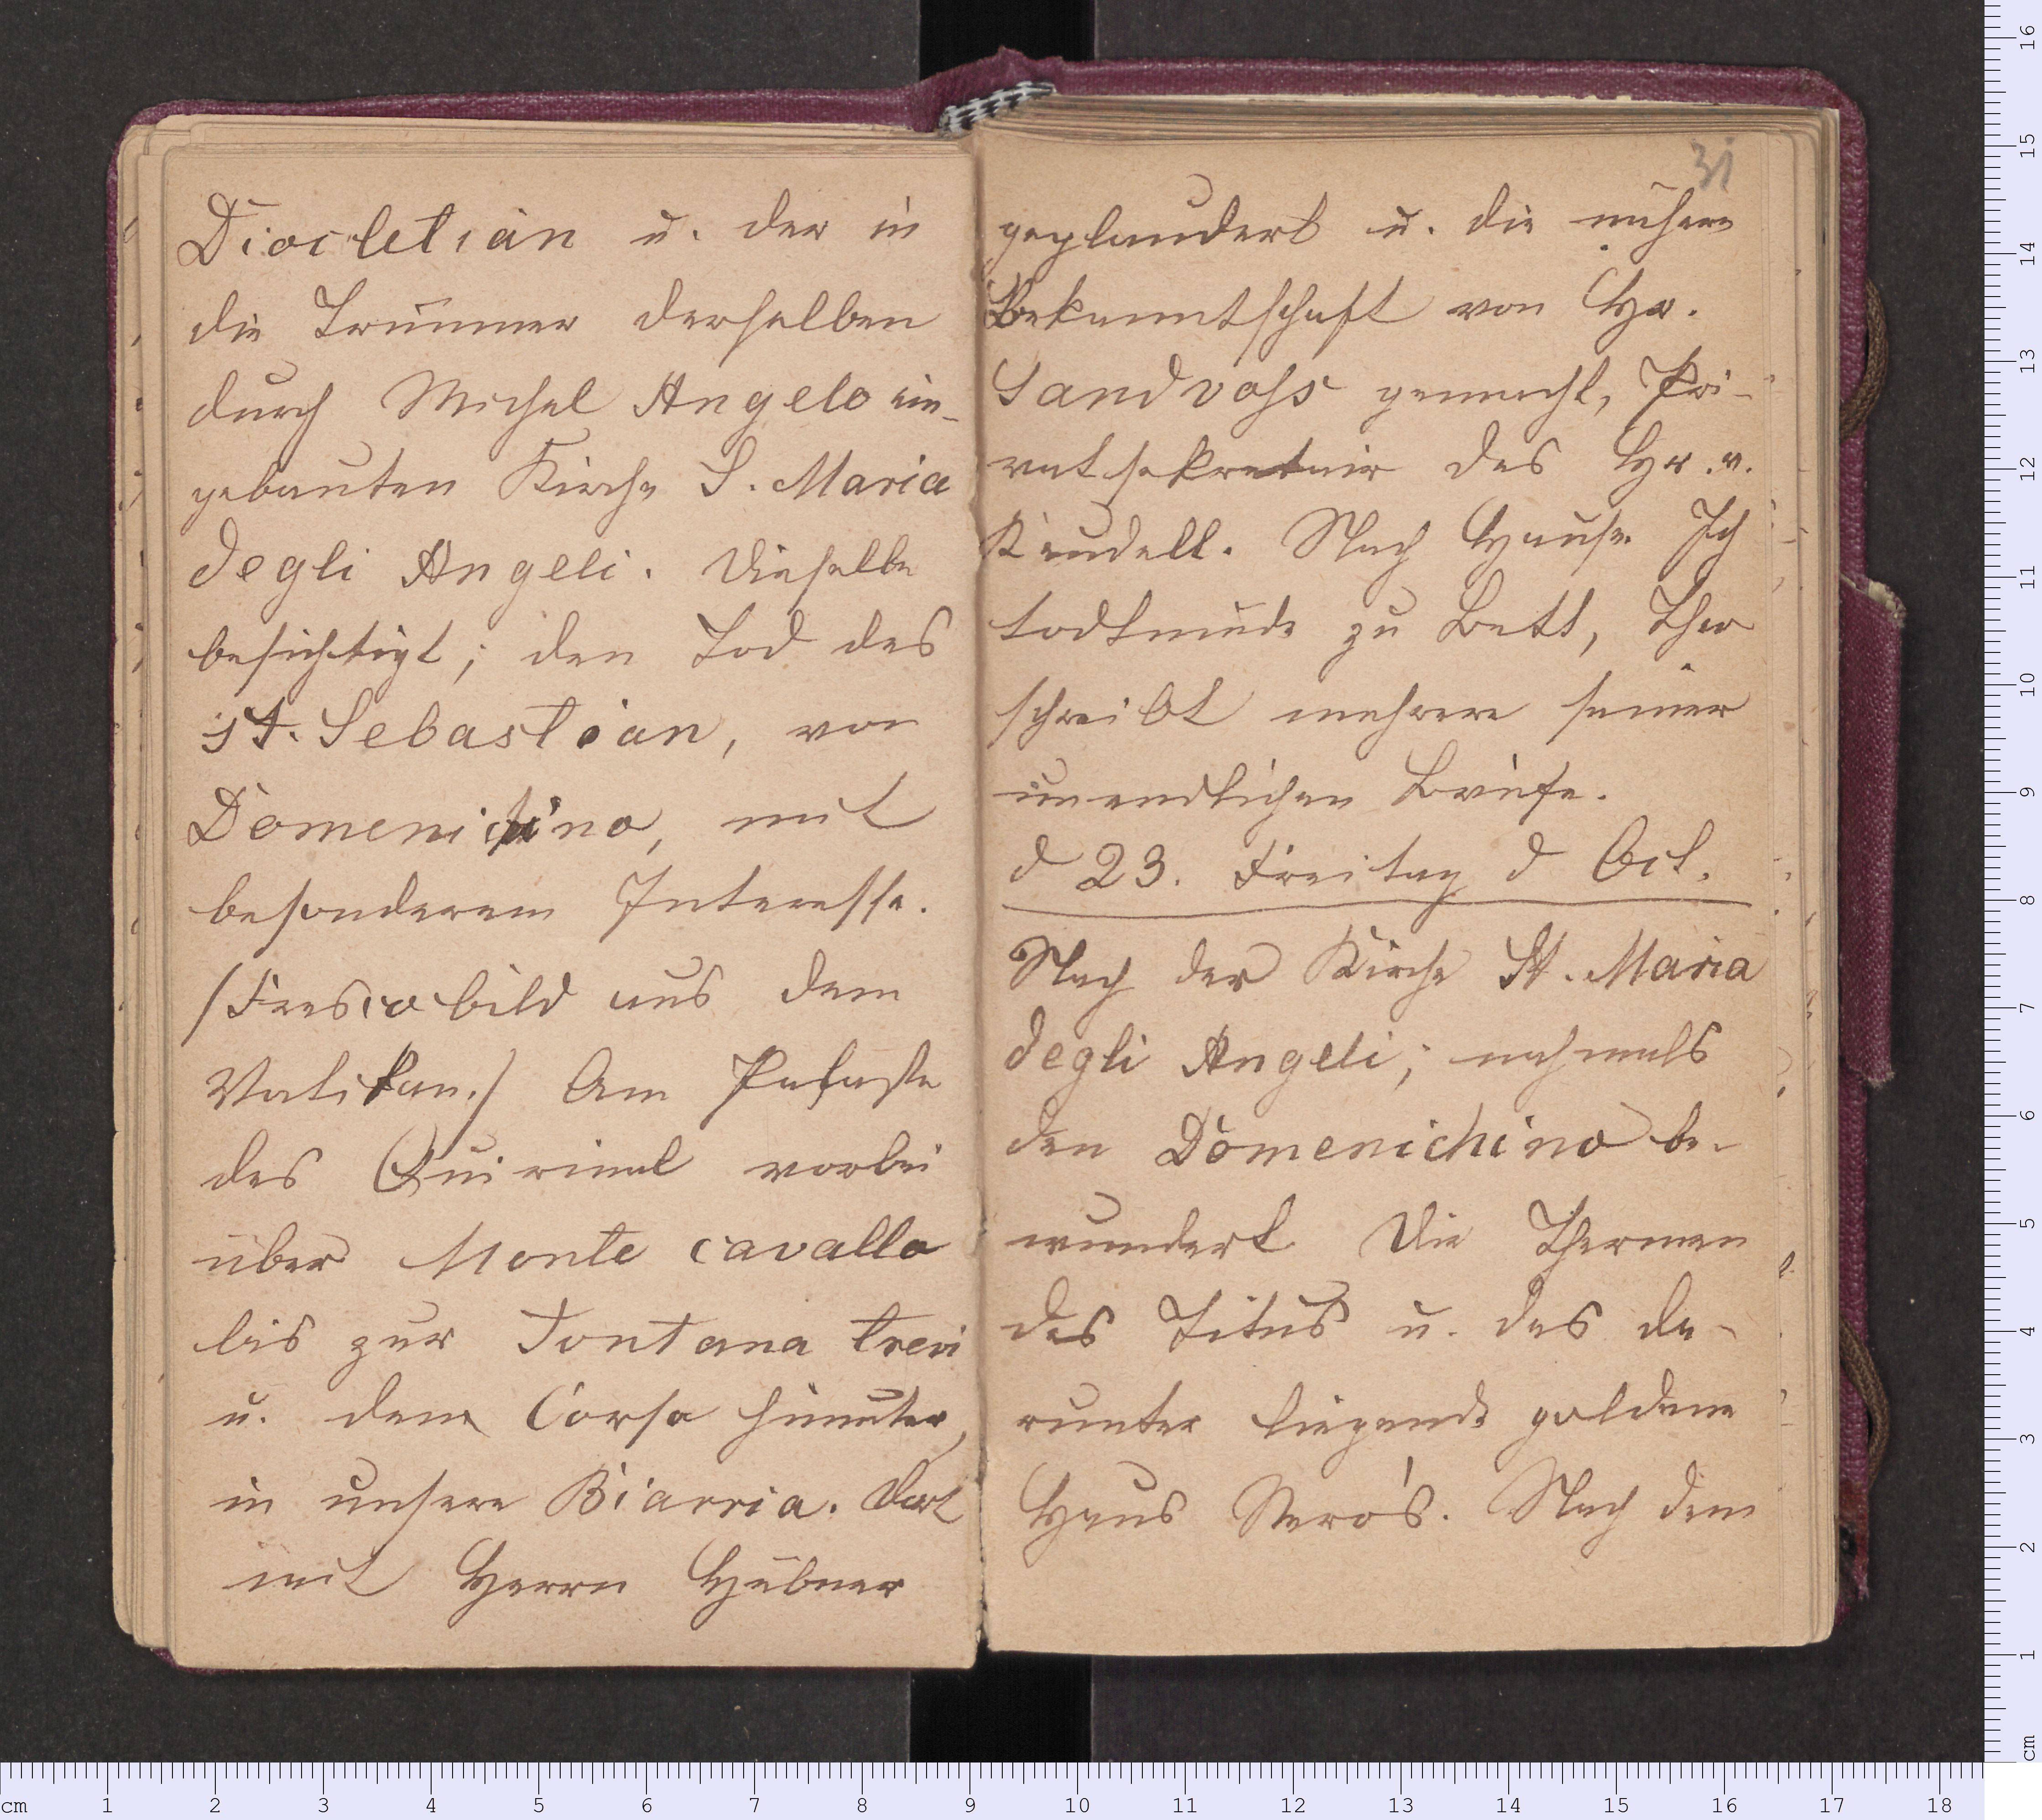 Diocletian u. der in
die Trümmer derselben
durch Michel Angelo ein-
gebauten Kirche S. Maria
degli Angeli. Dieselbe
besichtigt; den Tod des
st. Sebastian, von
Domenichino, mit
besonderem Interesse.
(Frescobild aus dem
Vatikan.) Am Palaste
des Quirinal vorbei
über Monte cavallo
bis zur Fontana trevi
u. dem Corso hinunter,
in unsere Biarria. Dort
mit Herrn Hübner
31
geplaudert u. die nähere
Bekanntschaft von Hr.
Sandvoss gemacht, Pri-
vatsekretair des Hr. v.
Keudell. Nach Hause. Ich
todtmüde zu Bett, Theo
schreibt mehrere seiner
unendlichen Briefe.
d 23. Freitag d Oct.
Nach der Kirche St. Maria
degli Angeli; nochmals
den Domenichino be-
wundert Die Thermen
des Titus u. das da-
runter liegende goldene
Haus Nero's. Nach dem
cm 1 2 3 4 5 6 7 8 9 10 11 12 13 14 15 16 17 18
cm 1 2 3 4 5 6 7 8 9 10 11 12 13 14 15 16